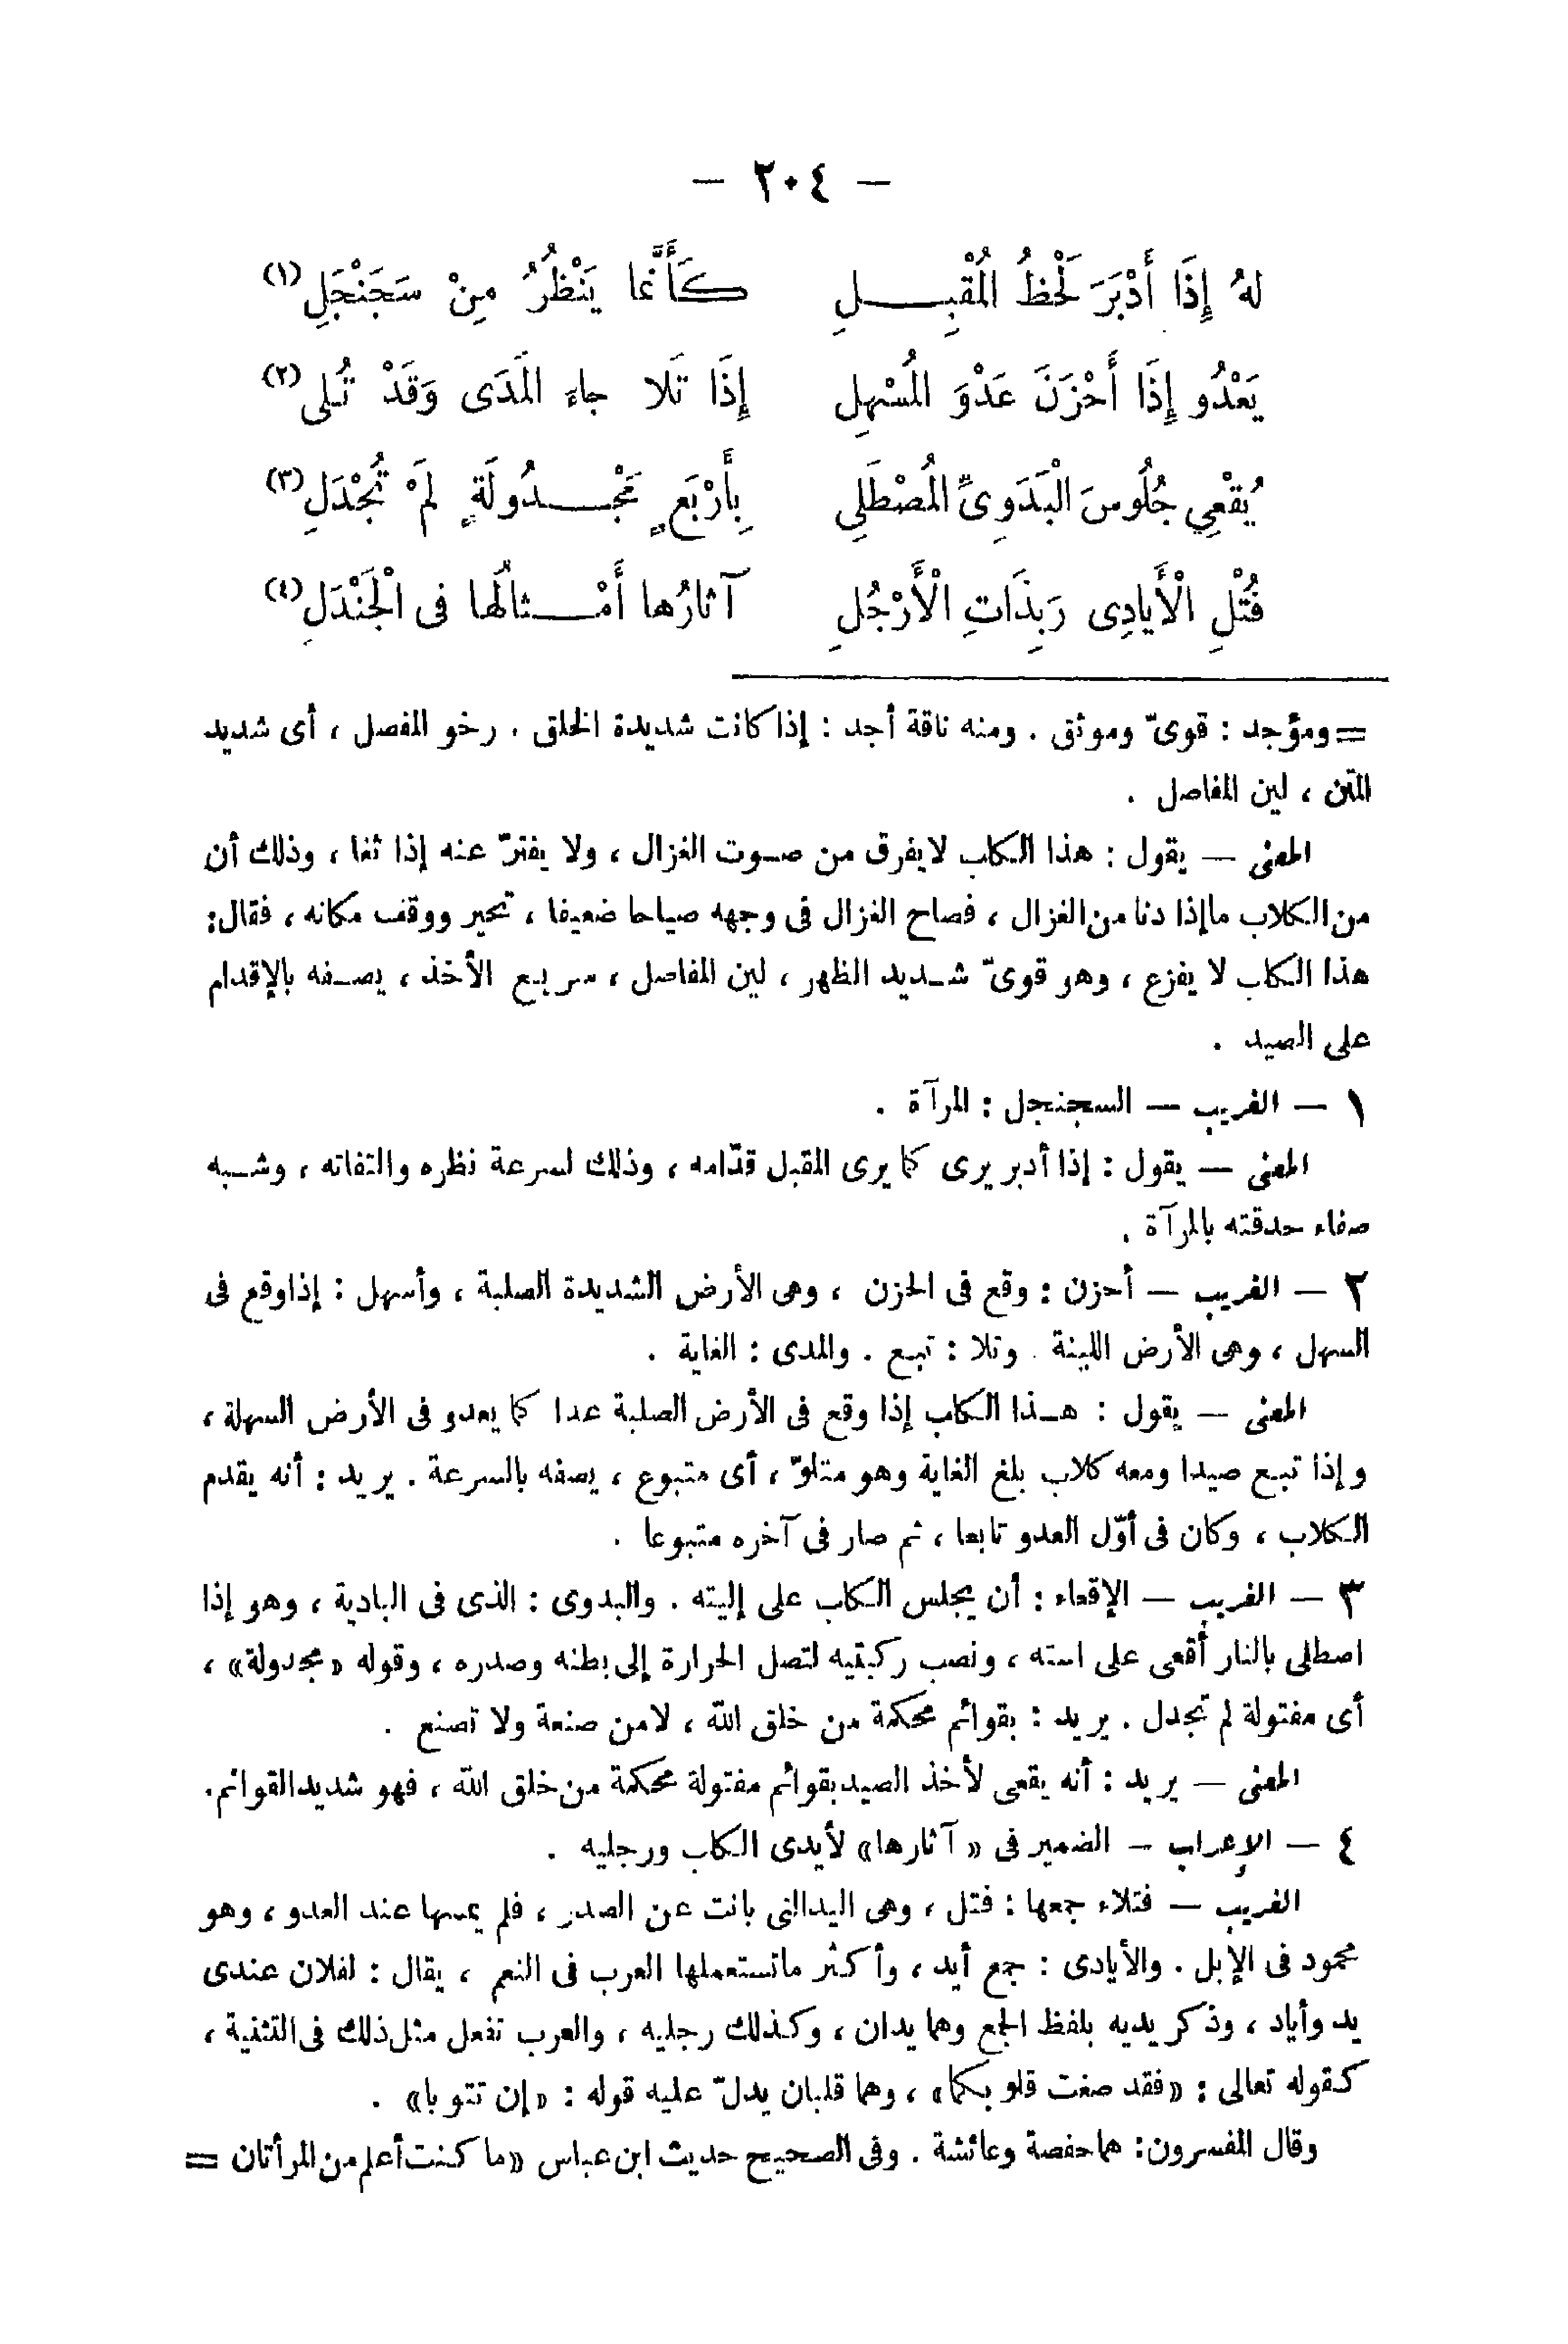 — ٢٠٤ —
لهُ إِذَا أَدْبَرَ لَحْظُ الْمُقْبِـــلِ كَأَنَّما يَنْظُرُ مِنْ سَجَنْجَلِ (١)
يَعْدُو إِذَا أَحْزَنَ عَدْوَ الْمُسْهِلِ إِذَا تَلا جاءِ الْمَدَى وَقَدْ تُـلِى (٢)
يُقْعِي جُلُوسَ الْبَدَوِىِّ الْمُصْطَلِى بِأَرْبَعٍ مَجْـــدُولَةٍ لَمْ تُجْدَلِ (٣)
فُتْلِ الْأَيادِى رَبِذَاتِ الْأَرْجُلِ آثارُها أَمْـــثالُها فى الْجَنْدَلِ (٤)
= ومؤجد : قوىّ وموثق . ومنه ناقة أجد : إذا كانت شديدة الخلق . رخو المفصل ، أى شديد
المتن ، لين المفاصل .
المعنى — يقول : هذا الكلب لا يفرق من صوت الغزال ، ولا يفترّ عنه إذا ثغا ، وذلك أن
من الكلاب ما إذا دنا من الغزال ، فصاح الغزال فى وجهه صياحا ضعيفا ، تحير ووقف مكانه ، فقال :
هذا الكلب لا يفزع ، وهو قوىّ شديد الظهر ، لين المفاصل ، سريع الأخذ ، يصفه بالإقدام
على الصيد .
١ — الغريب — السجنجل : المرآة .
المعنى — يقول : إذا أدبر يرى كما يرى المقبل قدّامه ، وذلك لسرعة نظره والتفاته ، وشبه
صفاء حدقته بالمرآة .
٢ — الغريب — أحزن : وقع فى الحزن ، وهى الأرض الشديدة الصلبة ، وأسهل : إذا وقع فى
السهل ، وهى الأرض اللينة . وتلا : تبع . والمدى : الغاية .
المعنى — يقول : هذا الكلب إذا وقع فى الأرض الصلبة عدا كما يعدو فى الأرض السهلة ،
وإذا تبع صيدا ومعه كلاب بلغ الغاية وهو متلوّ ، أى متبوع ، يصفه بالسرعة . يريد : أنه يقدم
الكلاب ، وكان فى أوّل العدو تابعا ، ثم صار فى آخره متبوعا .
٣ — الغريب — الإقعاء : أن يجلس الكلب على إليته . والبدوى : الذى فى البادية ، وهو إذا
اصطلى بالنار أقعى على استه ، ونصب ركبتيه لتصل الحرارة إلى بطنه وصدره ، وقوله «مجدولة» ،
أى مفتولة لم تجدل . يريد : بقوائم محكمة من خلق الله ، لا من صنعة ولا تصنع .
المعنى — يريد : أنه يقعى لأخذ الصيد بقوائم مفتولة محكمة من خلق الله ، فهو شديد القوائم .
٤ — الإعراب — الضمير فى « آثارها» لأيدى الكلب ورجليه .
الغريب — فتلاء جمعها : فتل ، وهى اليد التى بانت عن الصدر ، فلم يمسها عند العدو ، وهو
محمود فى الإبل . والأيادى : جمع أيد ، وأكثر ما تستعملها العرب فى النعم ، يقال : لفلان عندى
يد وأياد ، وذكر يديه بلفظ الجمع وهما يدان ، وكذلك رجليه ، والعرب تفعل مثل ذلك فى التثنية ،
كقوله تعالى : «فقد صغت قلوبكما» ، وهما قلبان يدلّ عليه قوله : «إن تتوبا» .
وقال المفسرون : هما حفصة وعائشة . وفى الصحيح حديث ابن عباس «ما كنت أعلم من المرأتان =